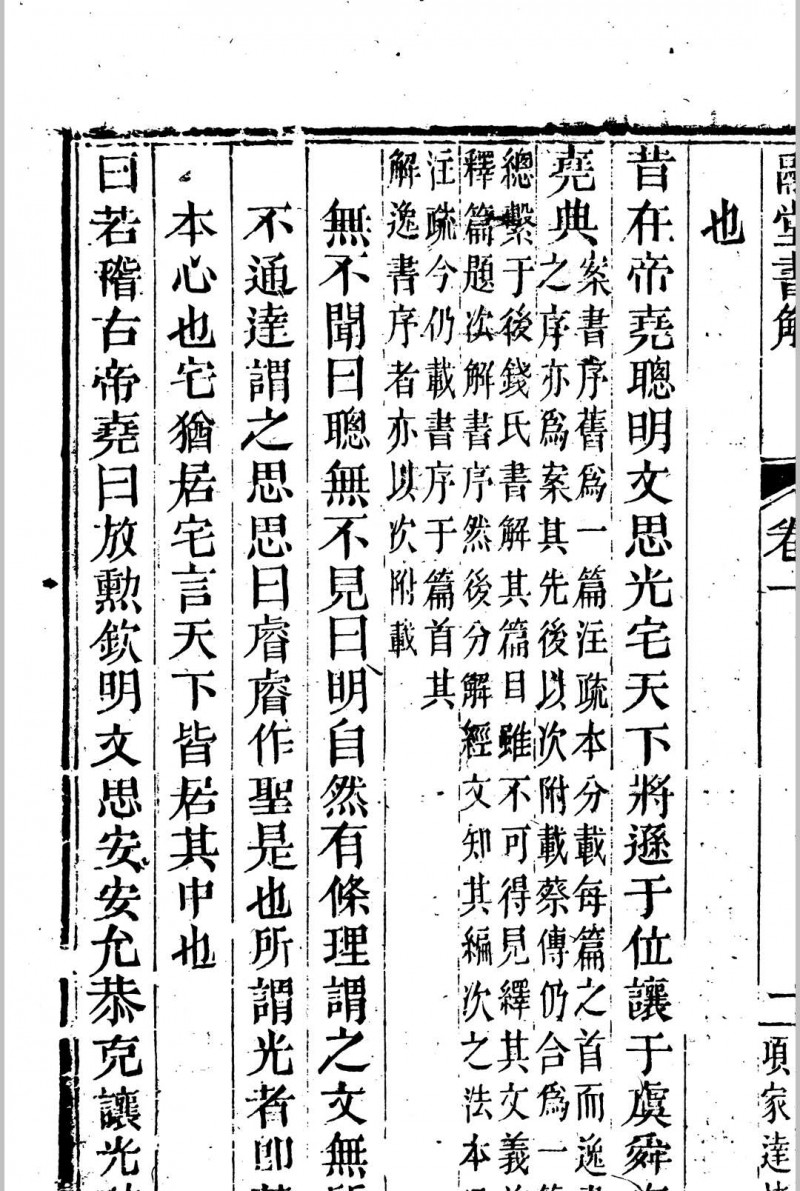 融堂書解 卷一 二 項家達
也
昔在帝堯聰明文思光宅天下將遜于位讓于虞舜
堯典
案書序舊爲一篇注疏本分載每篇之首而逸
之序亦爲案其先後以次附載蔡傳仍合爲一
總繫于後錢氏書解其篇目雖不可得見繹其文義
釋篇題次解書序然後分解經文知其編次之法本
注疏今仍載書序于篇首其
解逸書序者亦以次附載
無不聞曰聰無不見曰明自然有條理謂之文無所
不通達謂之思思曰睿睿作聖是也所謂光者卽
本心也宅猶居宅言天下皆居其中也
曰若稽古帝堯曰放勳欽明文思安安允恭克讓光